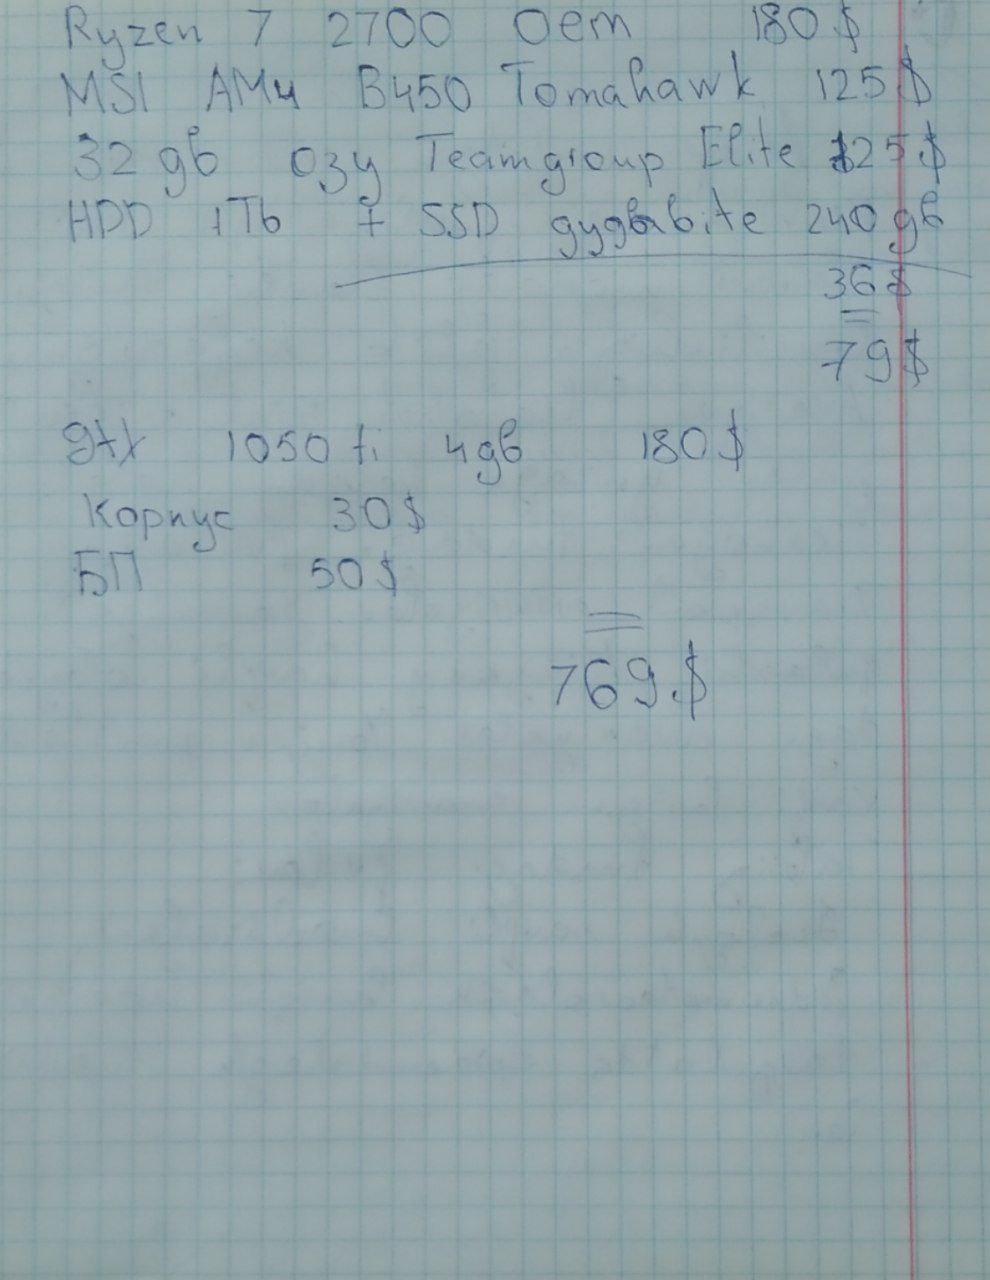 Ryzen 7 2700 Oem 180$
MSI AM4 B450 Tomahawk 125$
32 gb озу Teamgroup Elite 125$
HDD 1Tb + SSD gygabite 240 gb
36$
=
79$
gtx 1050 ti 4gb 180$
Корпус 30$
БП 50$
=
769.$